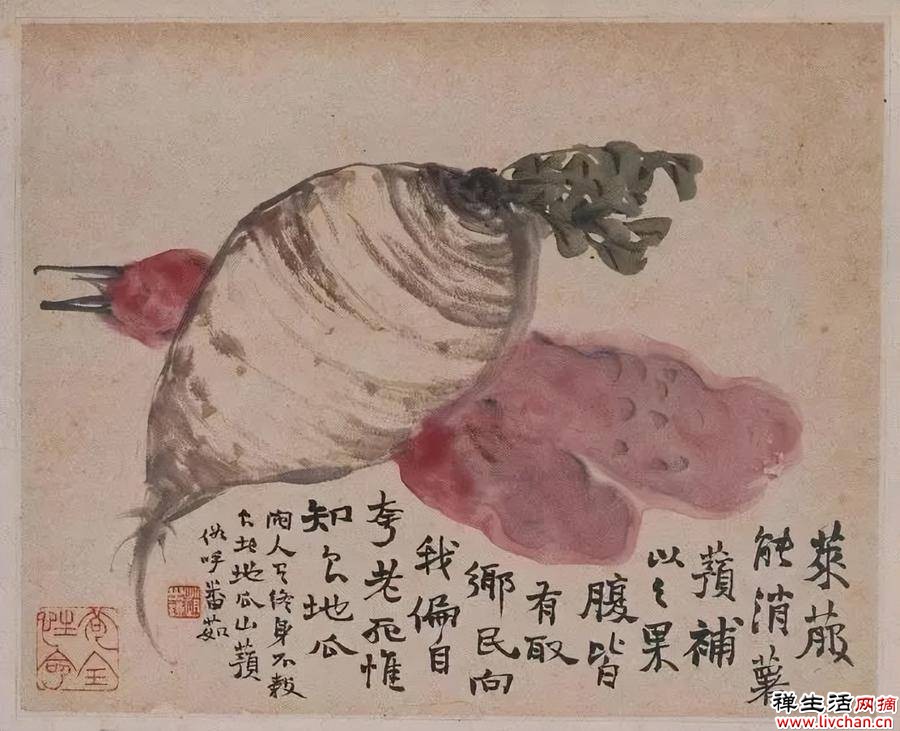 萊菔
能消薯
蕷補
以之果
腹皆
有取
鄉民向
我偏自
夸老死惟
知地瓜
人終身不穀
地瓜山蕷
俗呼番茹
苟全
性命
禅生活网摘
www.livchan.cn